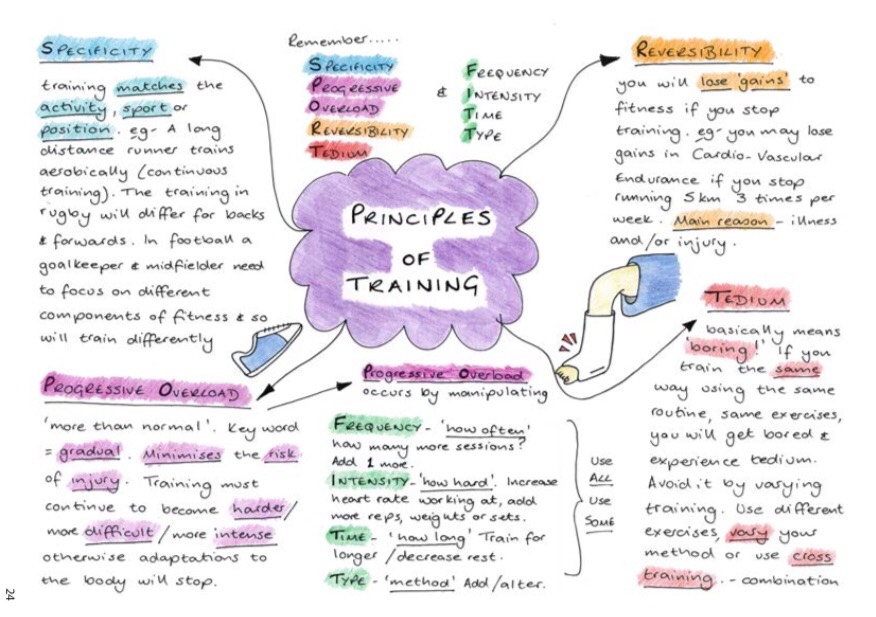 SPECIFICITY
training matches the
activity, sport or
position. eg- A long
distance runner trains
aerobically (continuous
training). The training in
rugby will differ for backs
& forwards. In football a
goalkeeper & midfielder need
to focus on different
components of fitness & so
will train differently
Remember.....
SPECIFICITY
PROGRESSIVE
OVERLOAD
REVERSIBILITY
TEDIUM
& FREQUENCY
INTENSITY
TIME
TYPE
REVERSIBILITY
you will lose 'gains' to
fitness if you stop
training. eg- you may lose
gains in Cardio-Vascular
Endurance if you stop
running 5km 3 times per
week. Main reason - illness
and/or injury.
PRINCIPLES
OF
TRAINING
TEDIUM
basically means
'boring!' If you
train the same
way using the same
routine, same exercises,
you will get bored &
experience tedium.
Avoid it by varying
training. Use different
exercises, vary your
method or use cross
training. - combination
PROGRESSIVE OVERLOAD
'more than normal'. Key word
= gradual. Minimises the risk
of injury. Training must
continue to become harder/
more difficult/more intense
otherwise adaptations to
the body will stop.
Progressive Overload
occurs by manipulating
FREQUENCY - 'how often'
how many more sessions?
Add 1 more.
INTENSITY - 'how hard'. Increase
heart rate working at, add
more reps, weights or sets.
TIME - 'how long' Train for
longer/decrease rest.
TYPE - 'method' Add/alter.
Use
ALL
Use
SOME
24